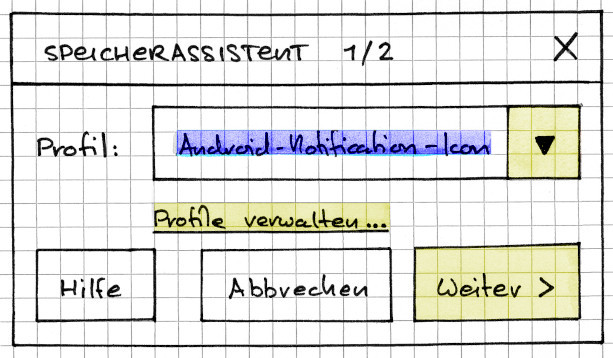 SPEICHERASSISTENT 1/2 X
Profil: Android-Notification-Icon ▼
Profile verwalten...
Hilfe Abbrechen Weiter >